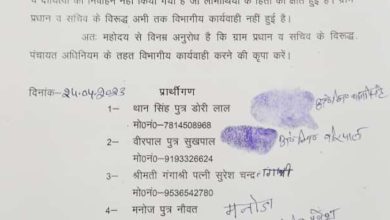 व दायित्वों का निर्वहन नहीं किया गया है जो लाभार्थियों के हितों की क्षति हुई है। ग्राम
प्रधान व सचिव के विरूद्ध अभी तक विभागीय कार्यवाही नहीं हुई है।
अतः महोदय से विनम्र अनुरोध है कि ग्राम प्रधान व सचिव के विरूद्ध
पंचायत अधिनियम के तहत विभागीय कार्यवाही करने की कृपा करें।
प्रार्थीगण
दिनांक-24.04.2023
1— थान सिंह पुत्र डोरी लाल
मो0नं0-7814508968
2— वीरपाल पुत्र सुखपाल
मो0नं0-9193326624
3— श्रीमती गंगाश्री पत्नी सुरेश चन्द्र
मो0नं0-9536542780
4— मनोज पुत्र नौवत मनोज